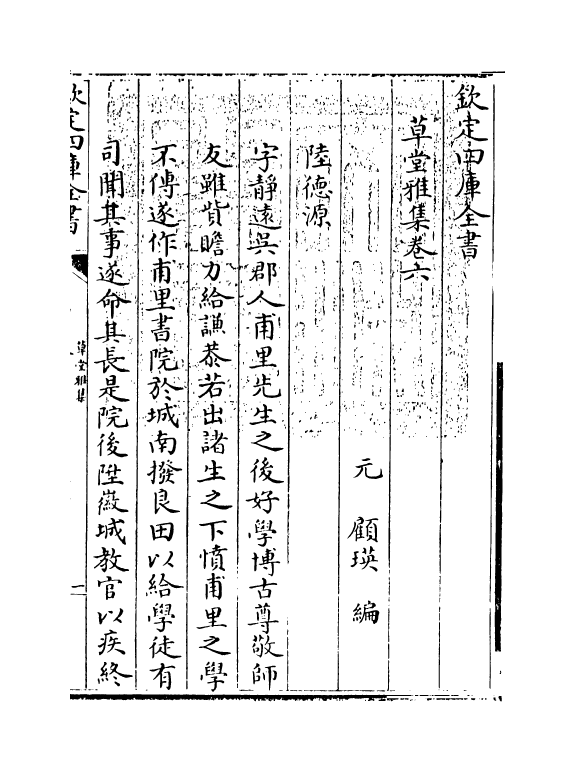 欽定四庫全書
草堂雅集卷六
元　顧瑛　編
陸德源
字靜遠吳郡人甫里先生之後好學博古尊敬師
友雖貲贍力給謙恭若出諸生之下憤甫里之學
不傳遂作甫里書院於城南撥良田以給學徒有
司聞其事遂命其長是院後陞徽城教官以疾終
欽定四庫全書
草堂雅集